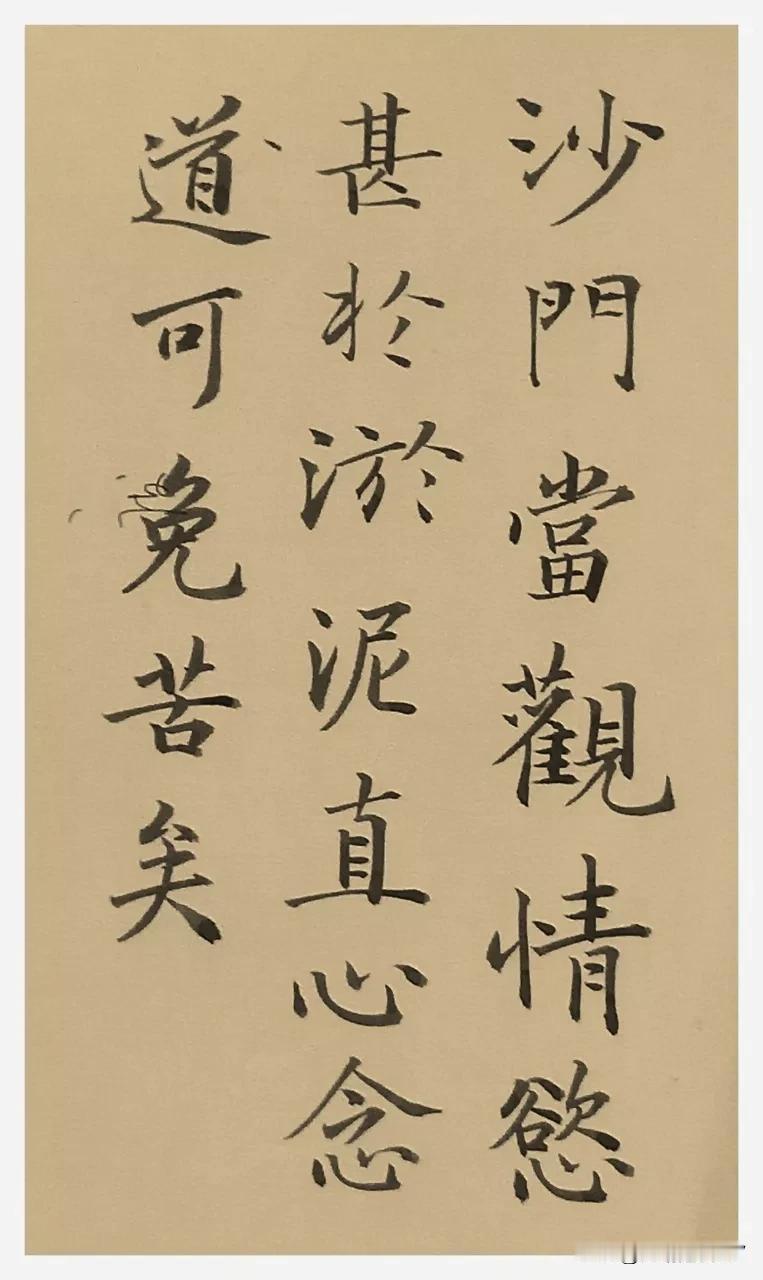 沙門當觀情慾
甚於淤泥直心念
道可免苦矣